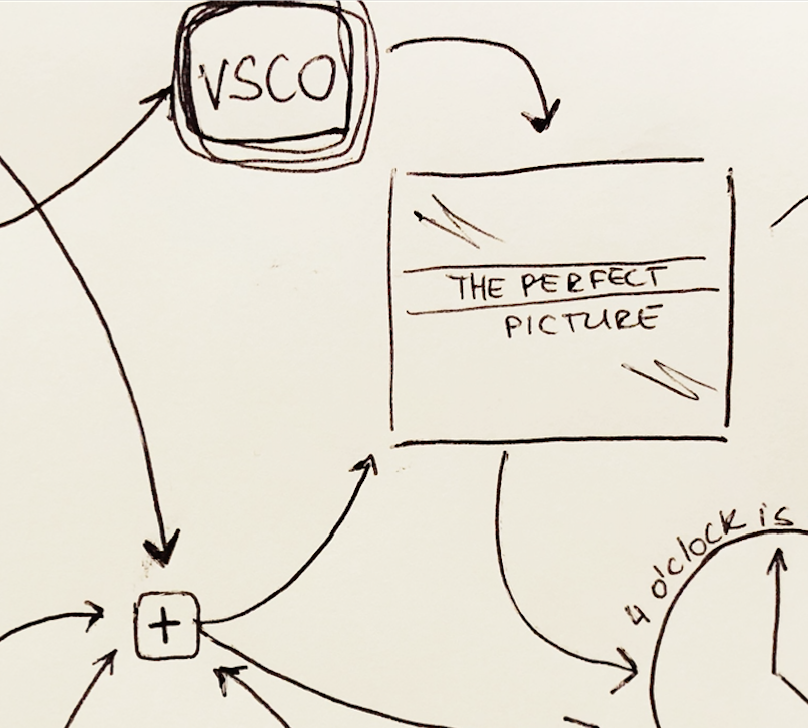 VSCO
THE PERFECT
PICTURE
4 o'clock is
+